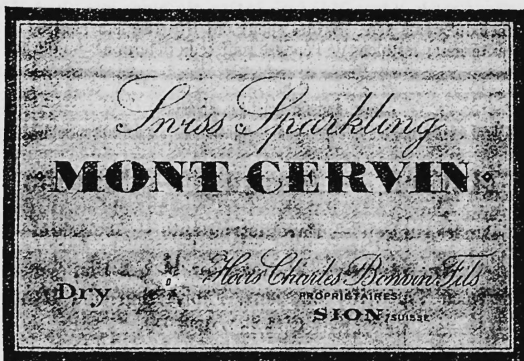 Swiss Sparkling
MONT CERVIN
Dry
Hoirs Charles Bonvin Fils
PROPRIÉTAIRES
SION/SUISSE